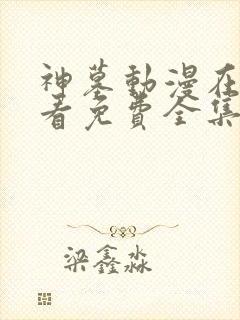 神墓動漫在
看免費全集
梁鑫淼